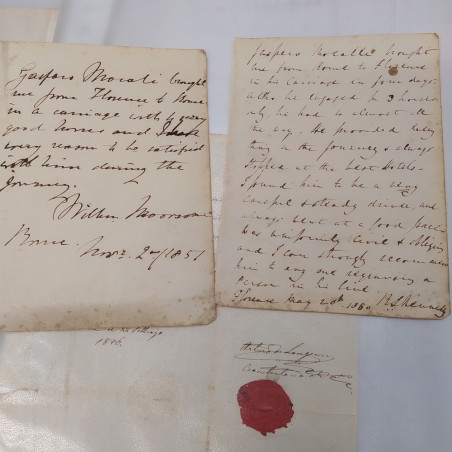 Gasparo Morati brought
me from Florence to Rome
in a carriage with 4 very
good horses and I have
every reason to be satisfied
with him during the
Journey.
Rome. Nov. 2nd/1851
brought
me from Rome to Florence
in his carriage in four days
altho he engaged 3 horses
only, he had to almost all
the way. He provided
thing on the journey & always
stopped at the best Hotels
I found him to be a very
careful & steady driver, and
always went at a good pace
was uniformly civil & obliging
and I can strongly recommend
him to any one requiring a
person in his line
Florence May 20th
1846.